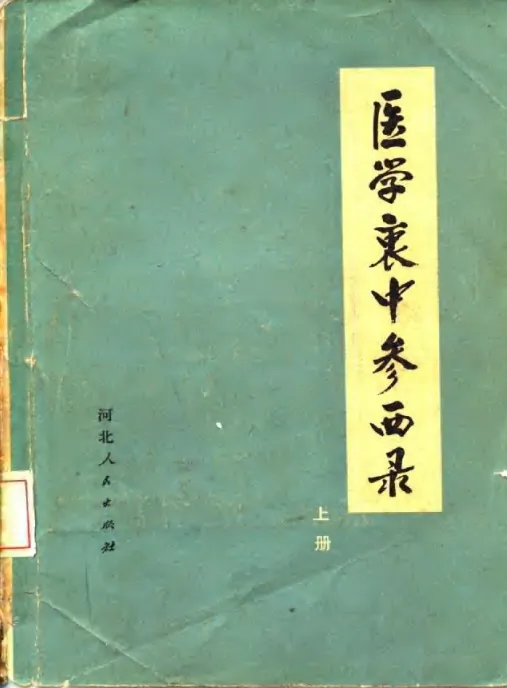 医学衷中参西录
上册
河北人民出版社